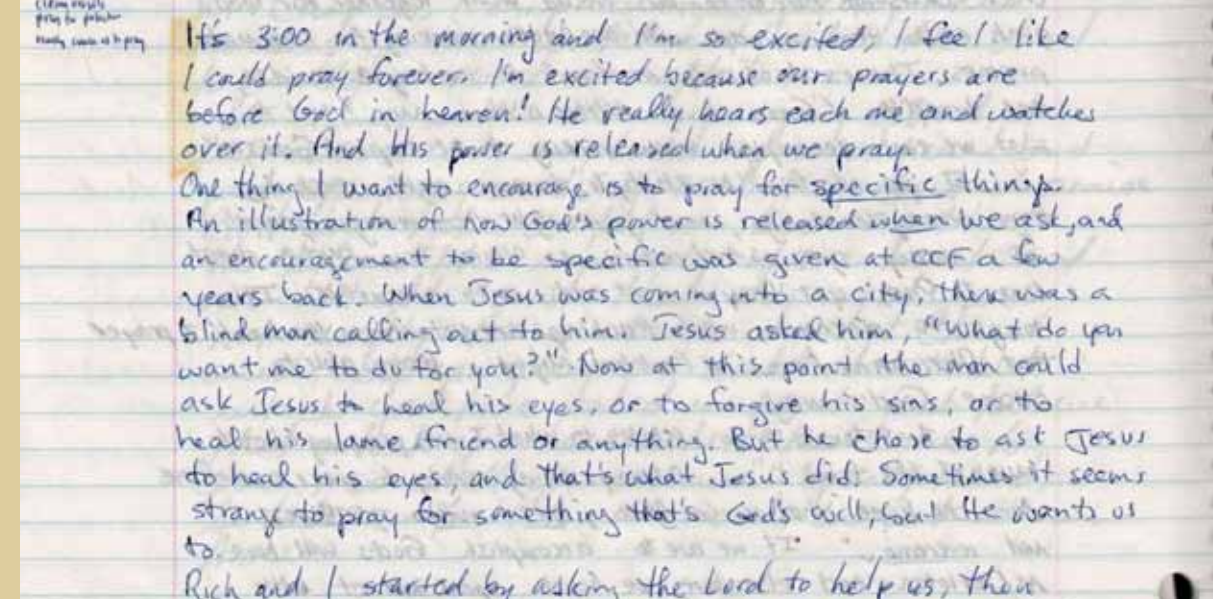 pray for
It's 3:00 in the morning and I'm so excited, I feel like
I could pray forever. I'm excited because our prayers are
before God in heaven! He really hears each one and watches
over it. And His power is released when we pray.
One thing I want to encourage is to pray for specific things.
An illustration of how God's power is released when we ask, and
an encouragement to be specific was given at CCF a few
years back. When Jesus was coming into a city, there was a
blind man calling out to him. Jesus asked him, "What do you
want me to do for you?" Now at this point the man could
ask Jesus to heal his eyes, or to forgive his sins, or to
heal his lame friend or anything. But he chose to ask Jesus
to heal his eyes, and that's what Jesus did. Sometimes it seems
strange to pray for something that's God's will, but He wants us
to.
Rich and I started by asking the Lord to help us, then